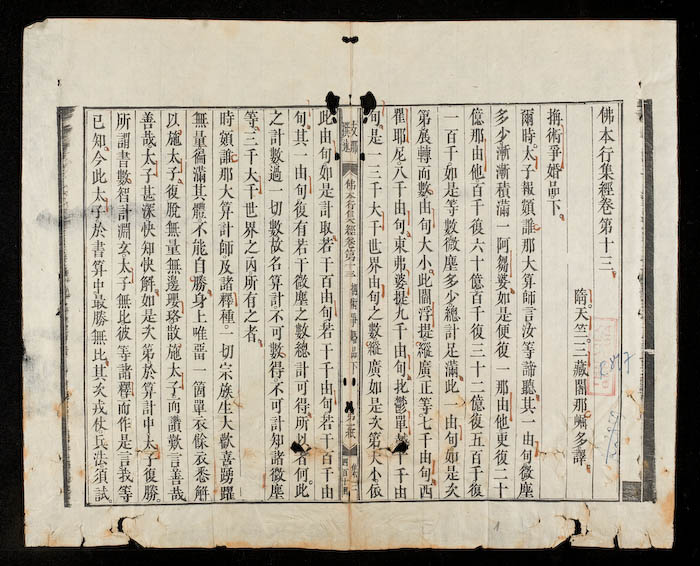 佛本行集經卷第十三
隋。天竺。三藏闍那崛多譯。
捔術爭婚品下。
爾時。太子報頞誰那大算師言汝等諦聽。其一由旬微塵
多少漸漸積滿一阿芻婆如是便復一那由他更復二十
億那由他百千復六十億百千復三十二億復五百千復
一百千如是等數微塵多少總計足滿此一由旬如是次
第展轉而數由旬大小此閻浮提縱廣正等七千由旬。西
瞿耶尼八千由旬。東弗婆提九千由旬。北鬱單 千由
旬。是一三千大千世界由旬之數縱廣如是次第大小依
佛本行集經卷第十三 捔術爭婚品下
此由旬如是計取若干百由旬若干千由旬若干百千由
旬。其一由旬復有若干微塵之數總計可得所以者何。此
之計數過一切數故名算計不可數得不可計知諸微塵
等。三千大千世界之內所有之者。
時頞誰那大算計師及諸釋種。一切宗族生大歡喜踴躍
無量徧滿其體不能自勝身上唯留一箇單衣餘衣悉解
以施太子。復脫無量無邊瓔珞散施太子而讚歎言善哉
善哉太子甚深快知快解。如是次第於算計中太子復勝。
所謂書數智計淵玄太子無比彼等諸釋而作是言我等
已知。今此太子於書算中最勝無比其次戎仗兵法須試